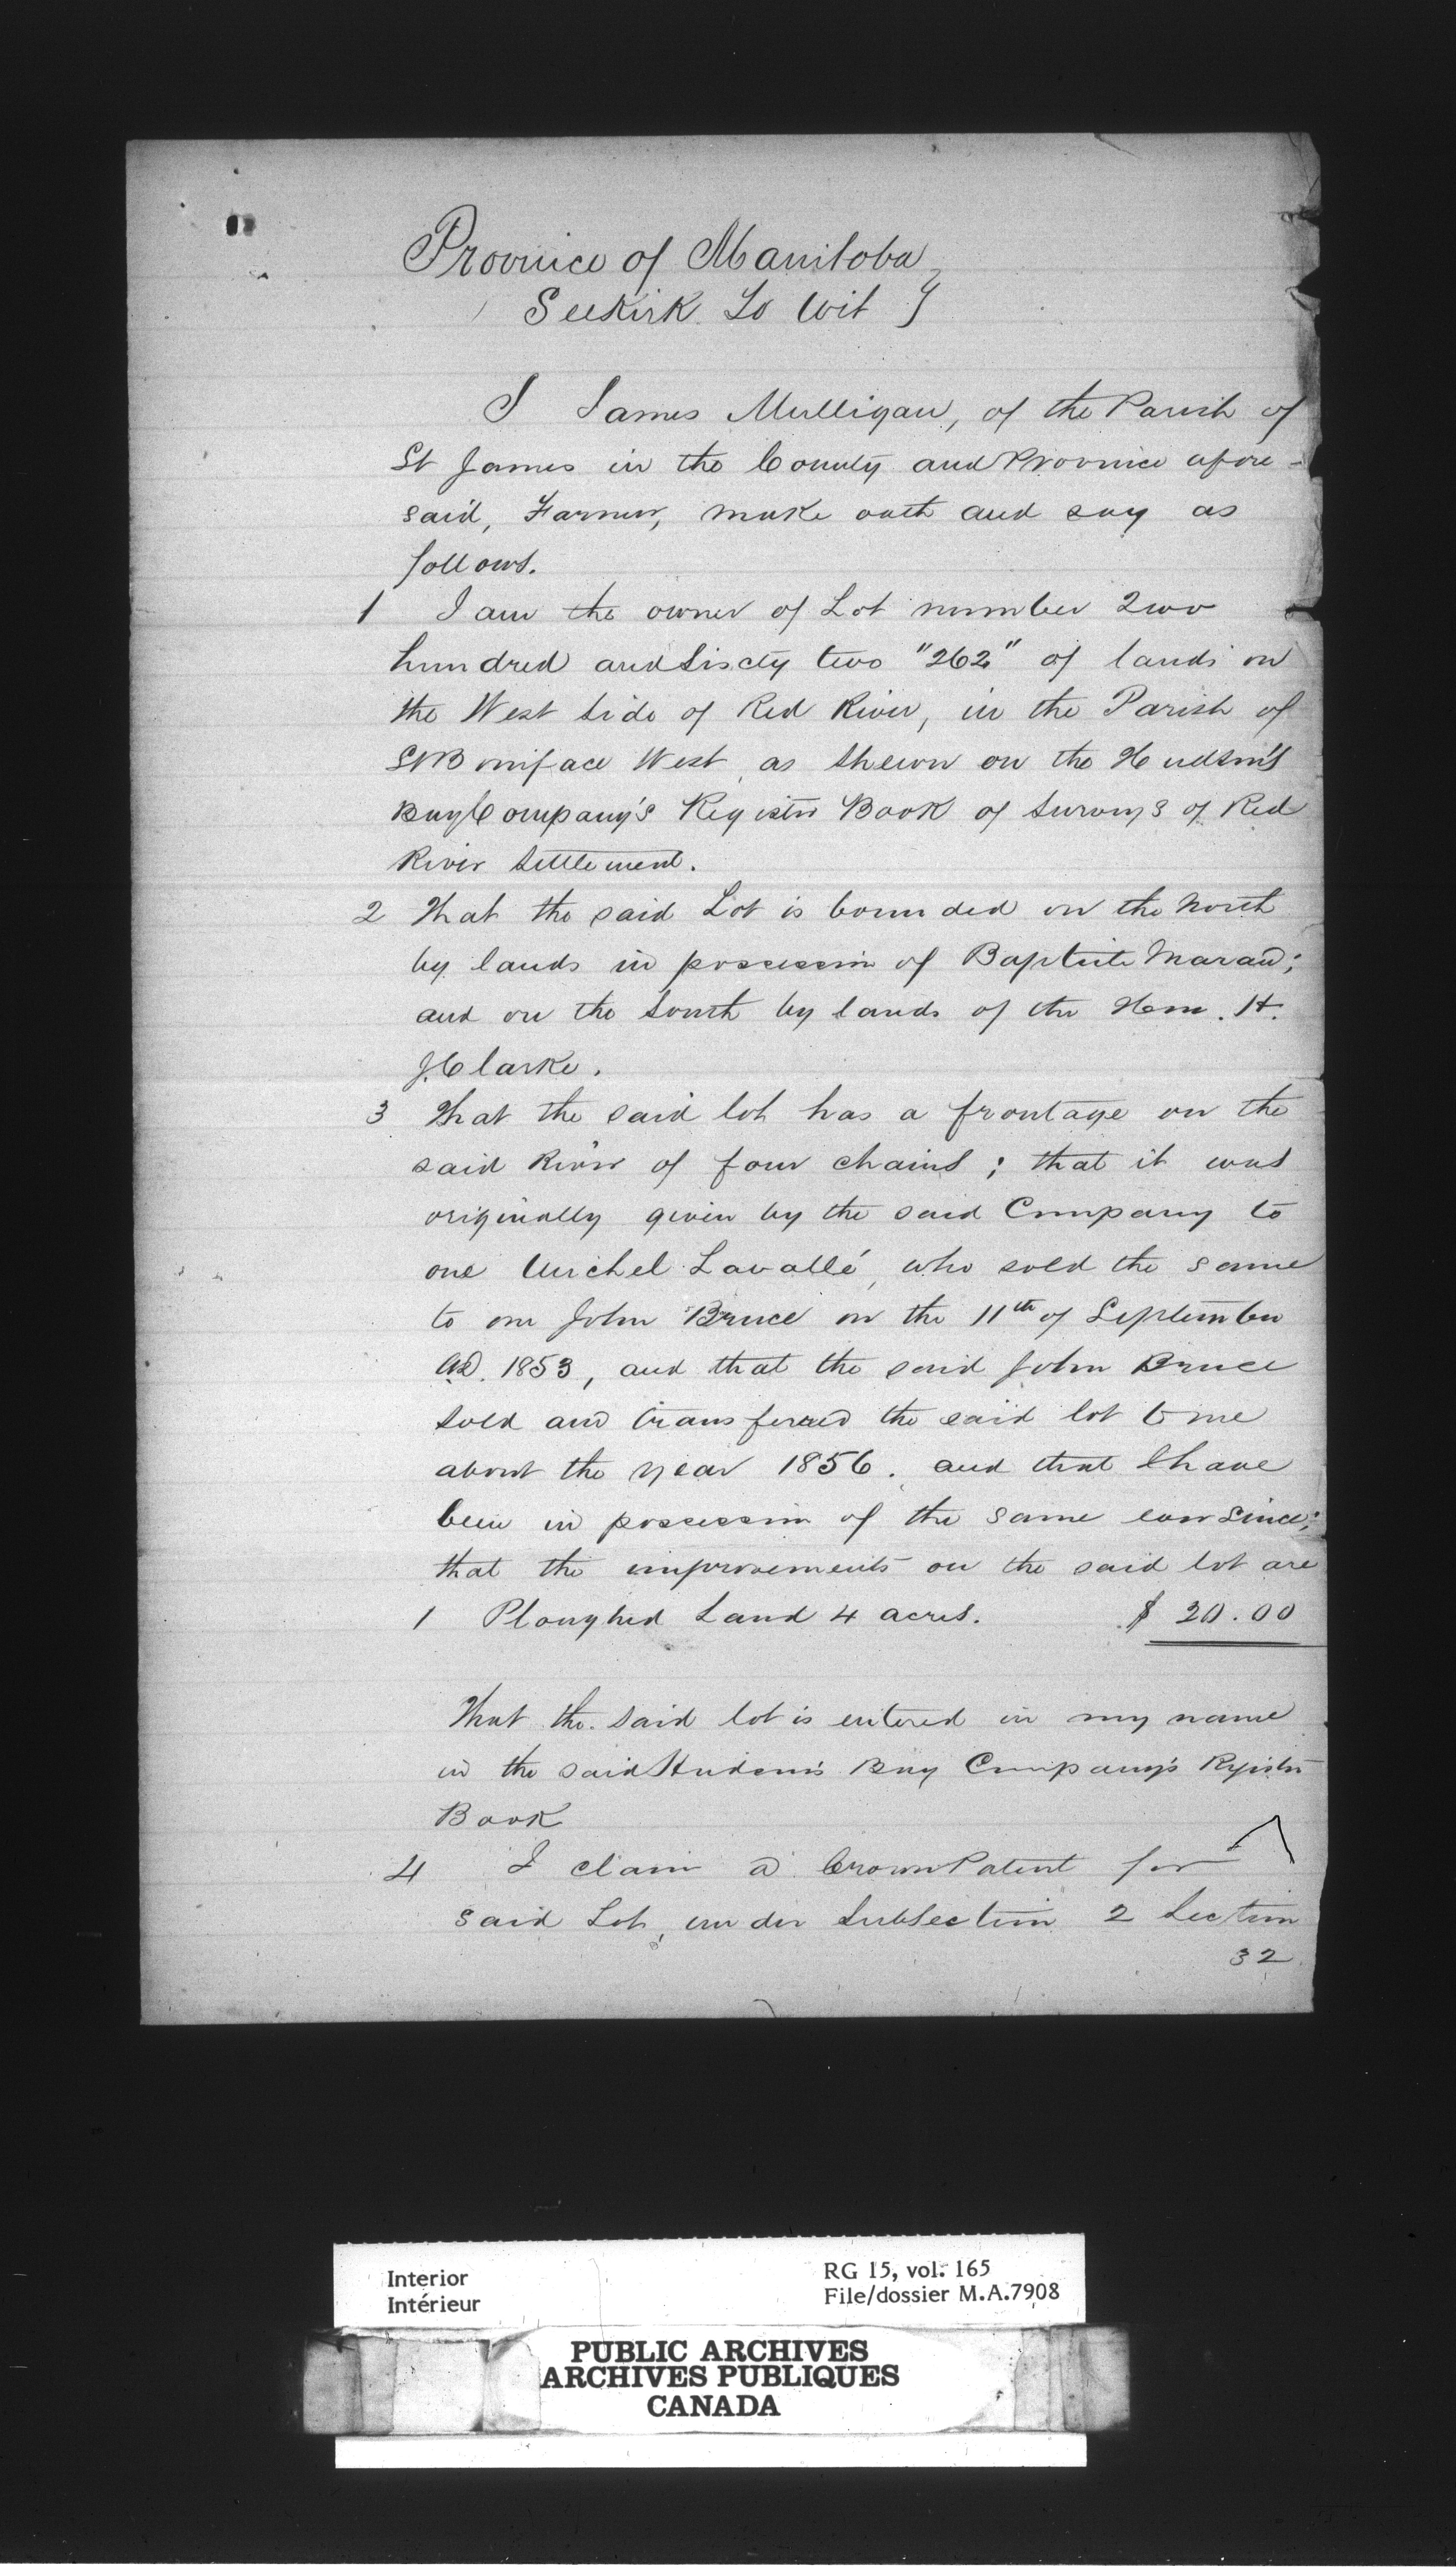 Province of Manitoba
Selkirk To Wit }
I James Mulligan, of the Parish of
St James in the County and Province afore-
said, Farmer, make oath and say as
follows.
1 I am the owner of Lot number Two
hundred and Sixty two "262" of lands on
the West Side of Red River, in the Parish of
St Boniface West, as Shewn on the Hudson's
Bay Company's Register Book of Surveys of Red
River Settlement.
2 That the said Lot is bounded on the North
by lands in possession of Baptiste
and on the South by lands of the Hon. H.
J. Clarke.
3 That the said lot has a frontage on the
said River of four chains; that it was
originally given by the said Company to
one Michel Lavallé, who sold the same
to one John Bruce on the 11th of September
A.D. 1853, and that the said John Bruce
Sold and transferred the said lot to me
about the year 1856. and that I have
been in possession of the same ever Since;
that the improvements on the said lot are
1 Ploughed Land 4 acres. $ 20.00
That the said lot is entered in my name
in the said Hudson's Bay Company's Register
Book
4 I claim a Crown Patent for
said Lot, under Subsection 2 Section
32
Interior
Intérieur
RG 15, vol. 165
File/dossier M.A.7908
PUBLIC ARCHIVES
ARCHIVES PUBLIQUES
CANADA